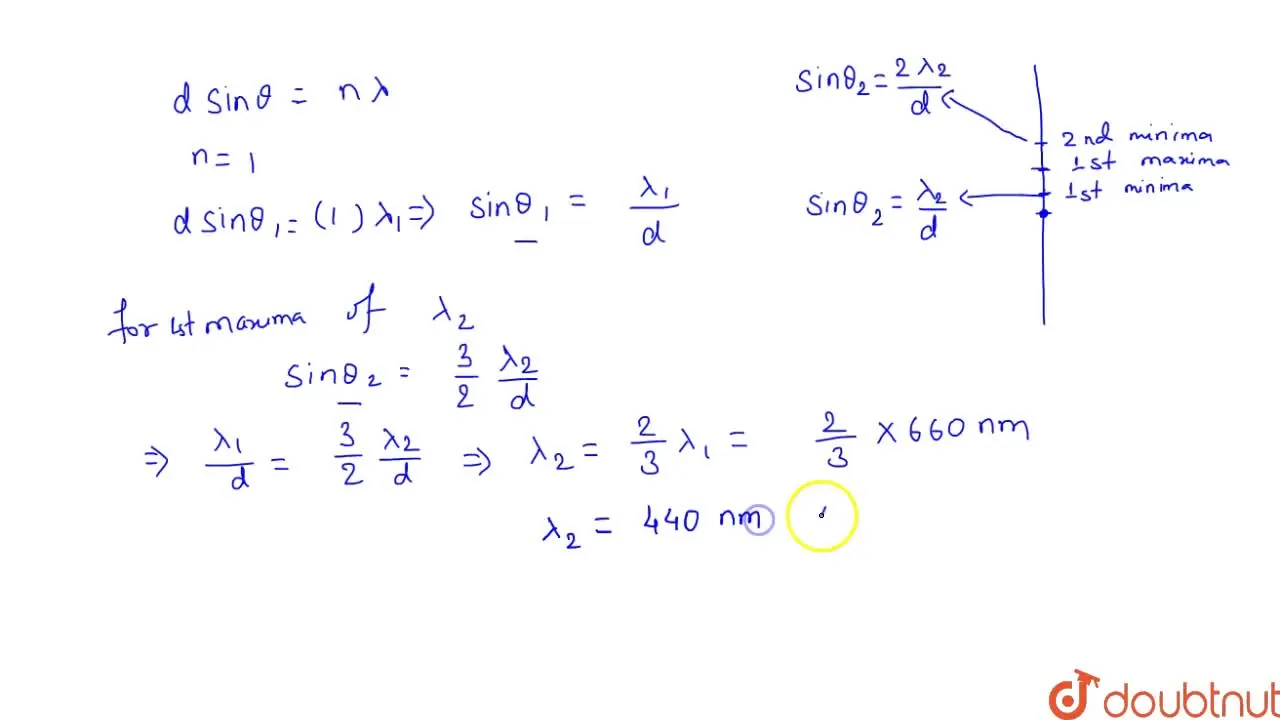 d sinθ = nλ
n = 1
d sinθ₁ = (1) λ₁ ⇒ sinθ₁ = λ₁/d
sinθ₂ = 2λ₂/d
2nd minima
1st maxima
1st minima
sinθ₂ = λ₂/d
for 1st maxima of λ₂
sinθ₂ = 3/2 λ₂/d
⇒ λ₁/d = 3/2 λ₂/d ⇒ λ₂ = 2/3 λ₁ = 2/3 × 660 nm
λ₂ = 440 nm
doubtnut